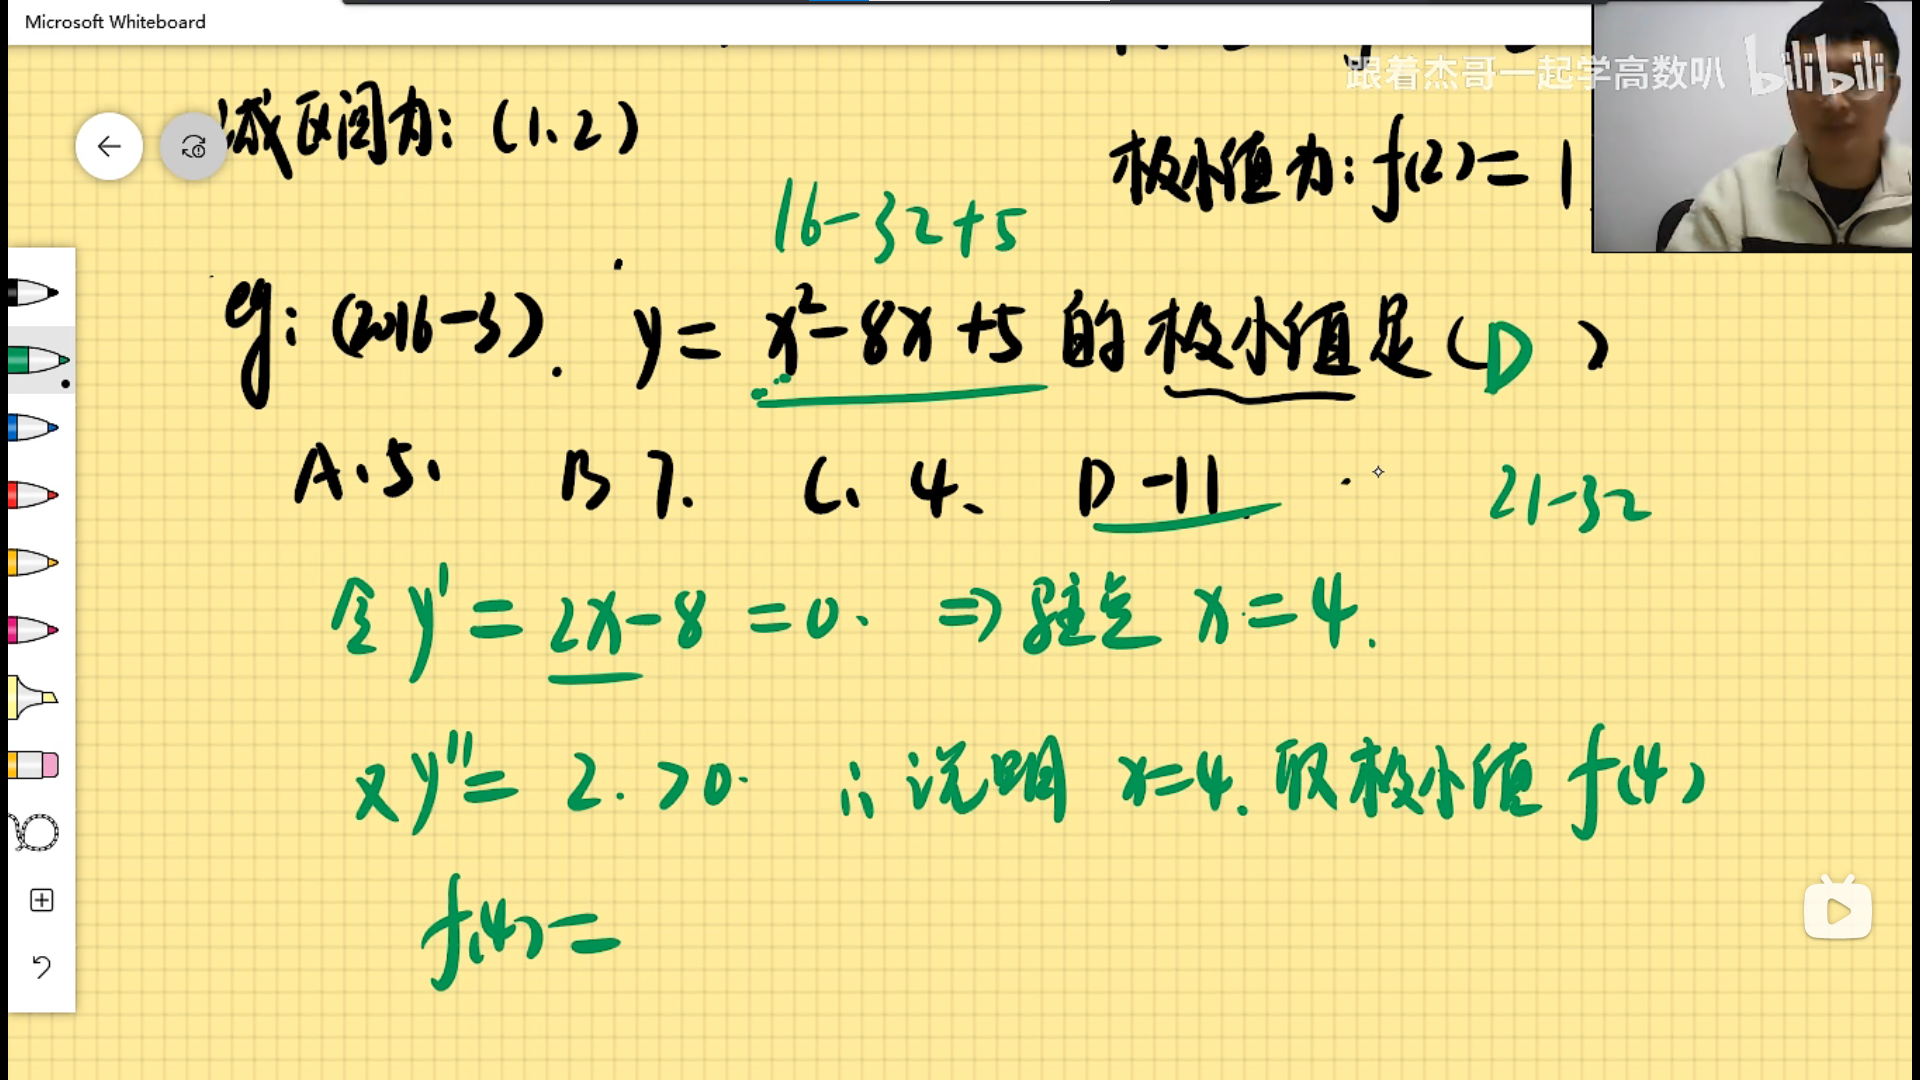 Microsoft Whiteboard
跟着杰哥一起学高数叭 bilibili
减区间为:(1、2)
极小值为:f(2)=1
16-32+5
eg:(2016-3). y=x²-8x+5的极小值是(D)
A.5. B 7. C、4、 D -11.
21-32
令y'=2x-8=0. ⇒驻点 x=4.
又y''=2.>0. ∴说明 x=4.取极小值f(4)
f(4)=